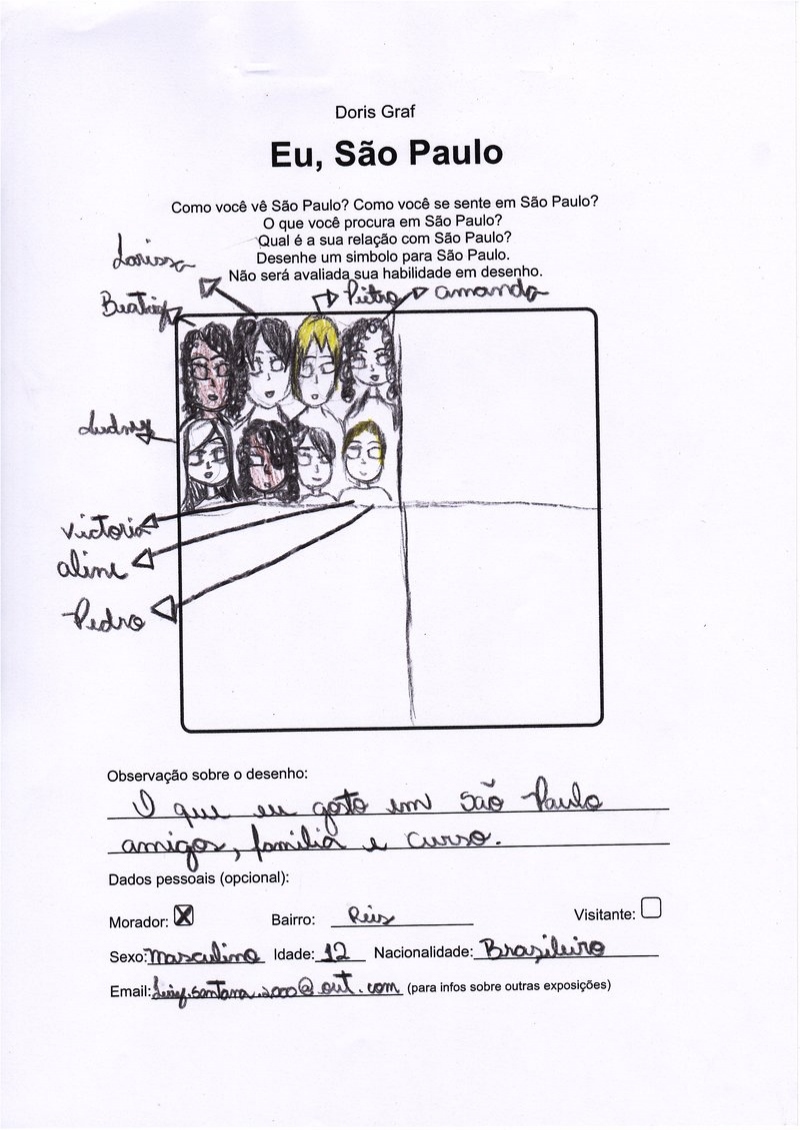 Doris Graf
Eu, São Paulo
Como você vê São Paulo? Como você se sente em São Paulo?
O que você procura em São Paulo?
Qual é a sua relação com São Paulo?
Desenhe um simbolo para São Paulo.
Não será avaliada sua habilidade em desenho.
Larissa
Beatriz
Pietro
amanda
victoria
aline
Pedro
Observação sobre o desenho:
O que eu gosto em São Paulo
amigos, familia e curso.
Dados pessoais (opcional):
Morador: X Bairro: Reis Visitante:
Sexo: masculino Idade: 12 Nacionalidade: Brasileiro
Email: (para infos sobre outras exposições)